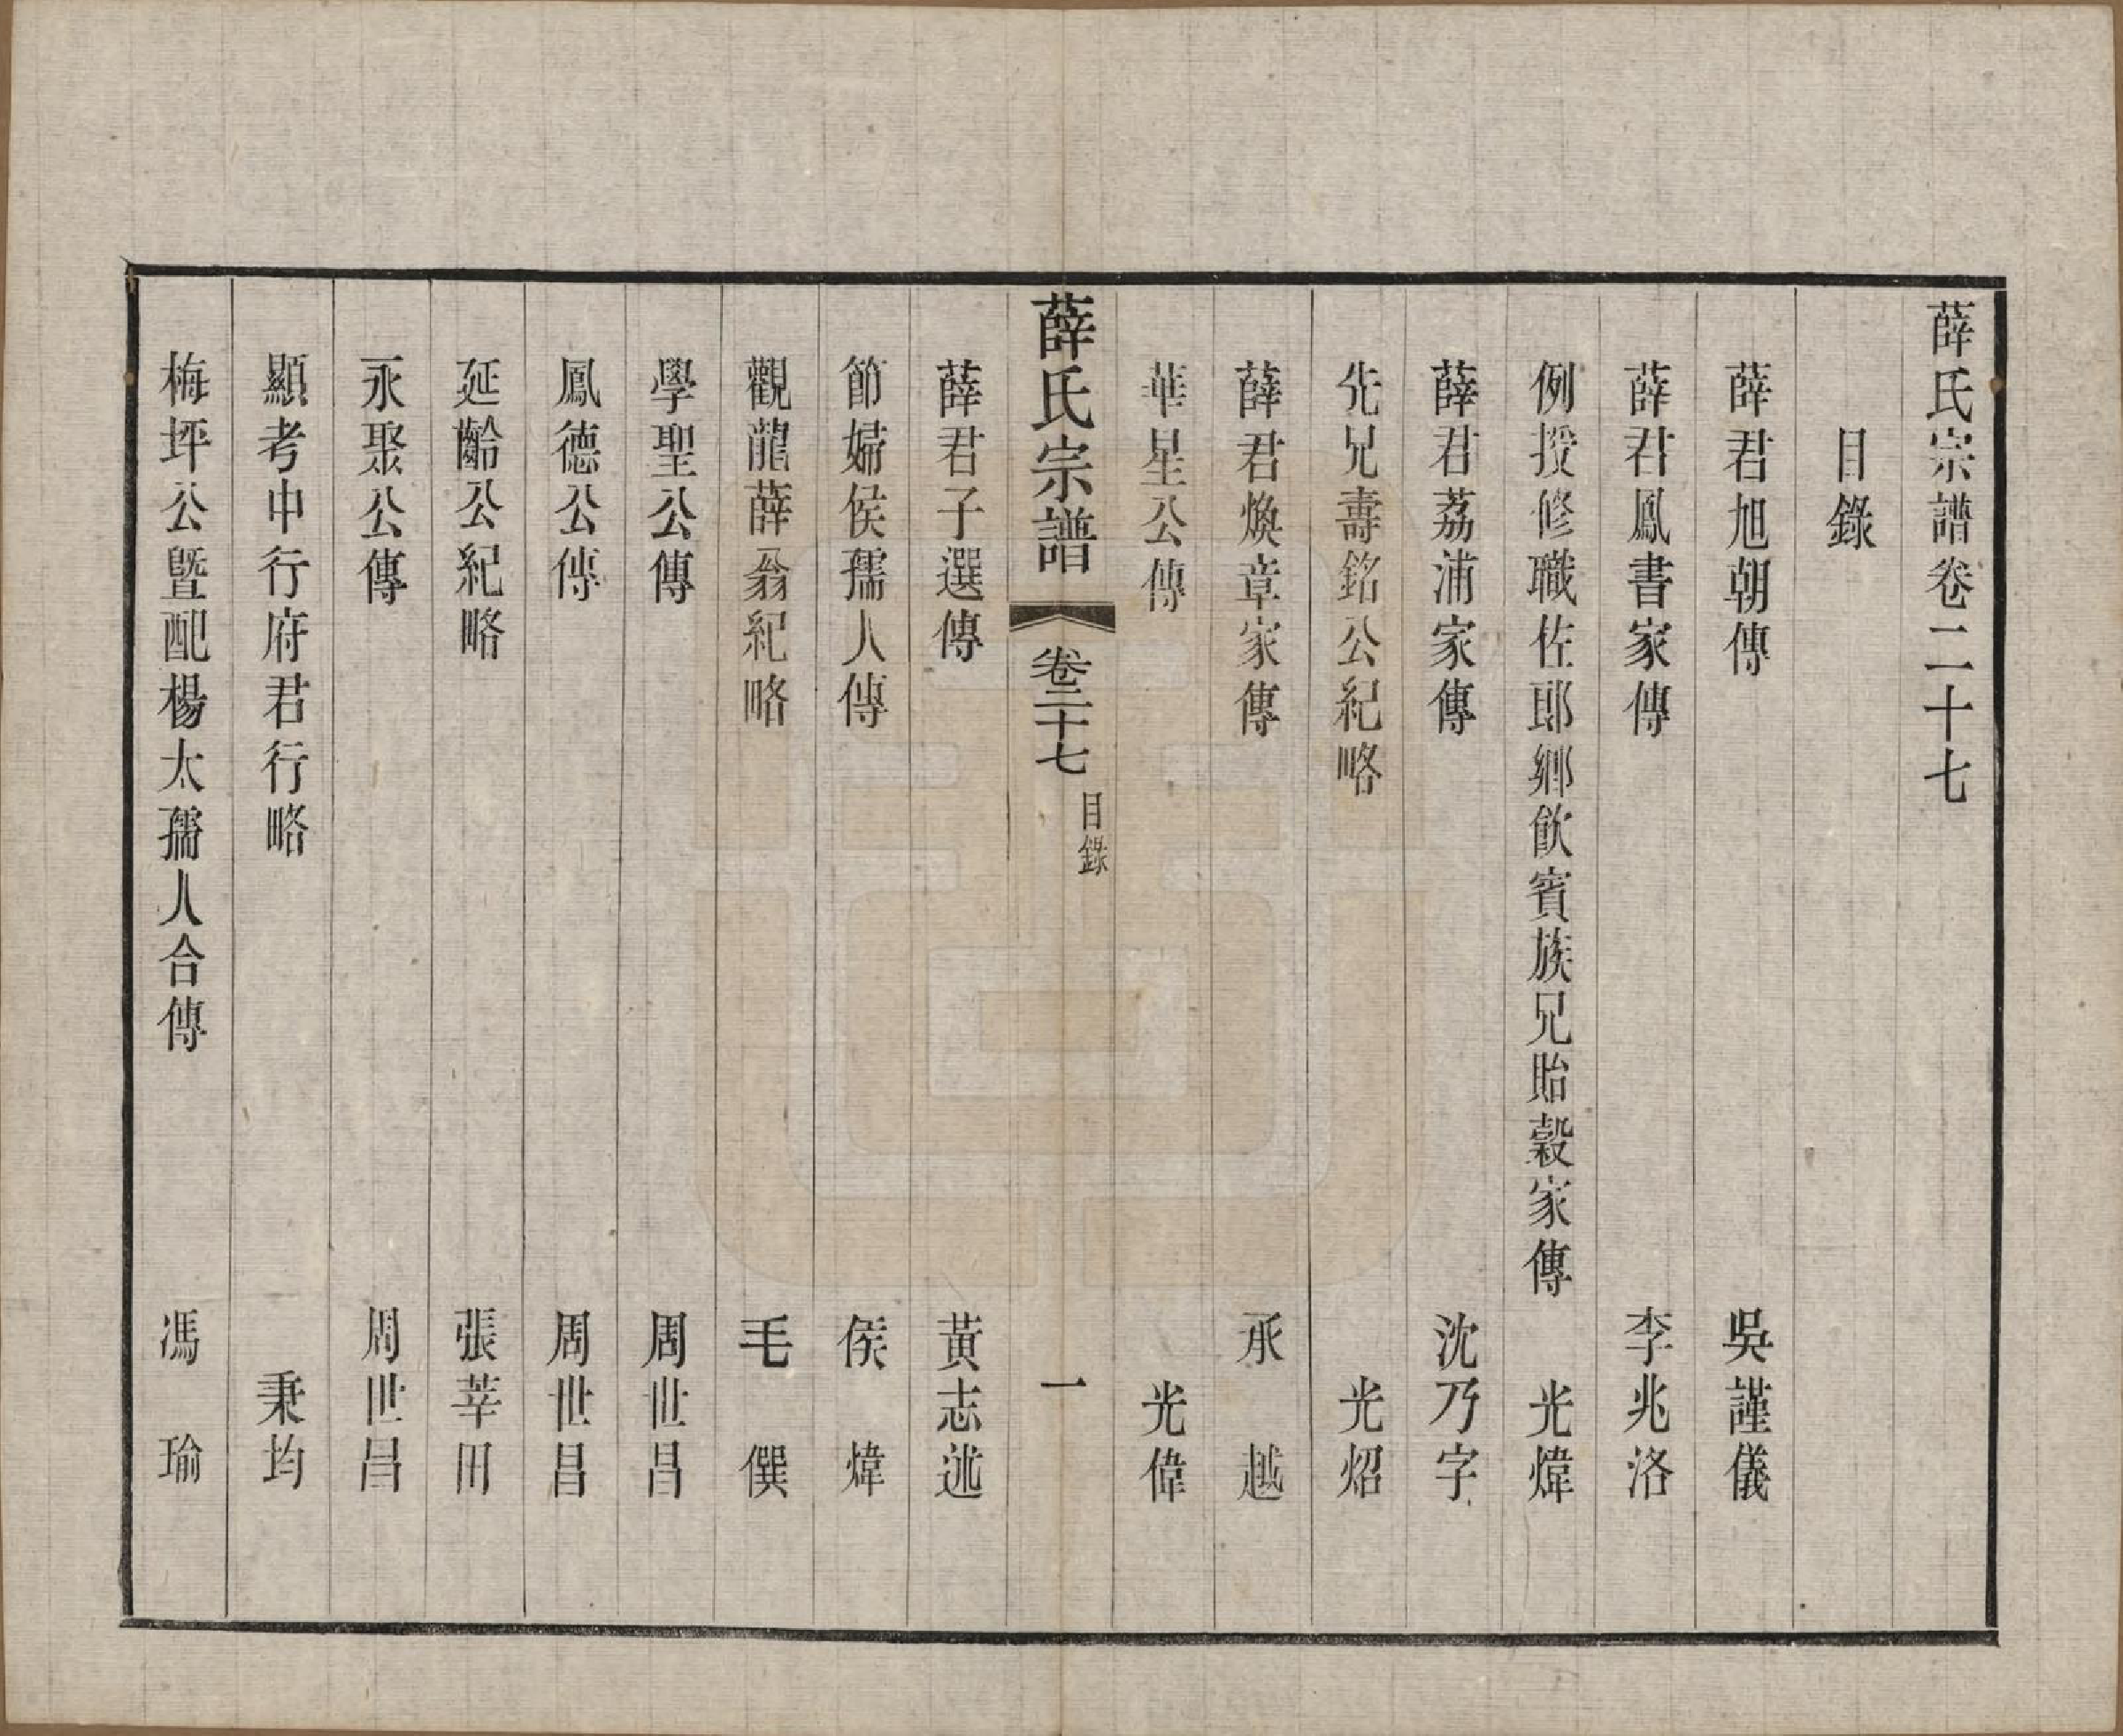 薛氏宗譜卷二十七
目錄
薛君旭朝傳 吳謹儀
薛君鳳書家傳 李兆洛
例授修職佐郎鄉飲賓族兄貽穀家傳 光煒
薛君荔浦家傳 沈乃字
先兄壽銘公紀略 光炤
薛君煥章家傳 承越
華星公傳 光偉
薛氏宗譜 卷二十七 目錄 一
薛君子選傳 黃志述
節婦侯孺人傳 侯煒
觀龍薛翁紀略 毛僎
學聖公傳 周世昌
鳳德公傳 周世昌
延齡公紀略 張莘田
永聚公傳 周世昌
顯考中行府君行略 秉均
梅坪公暨配楊太孺人合傳 馮瑜